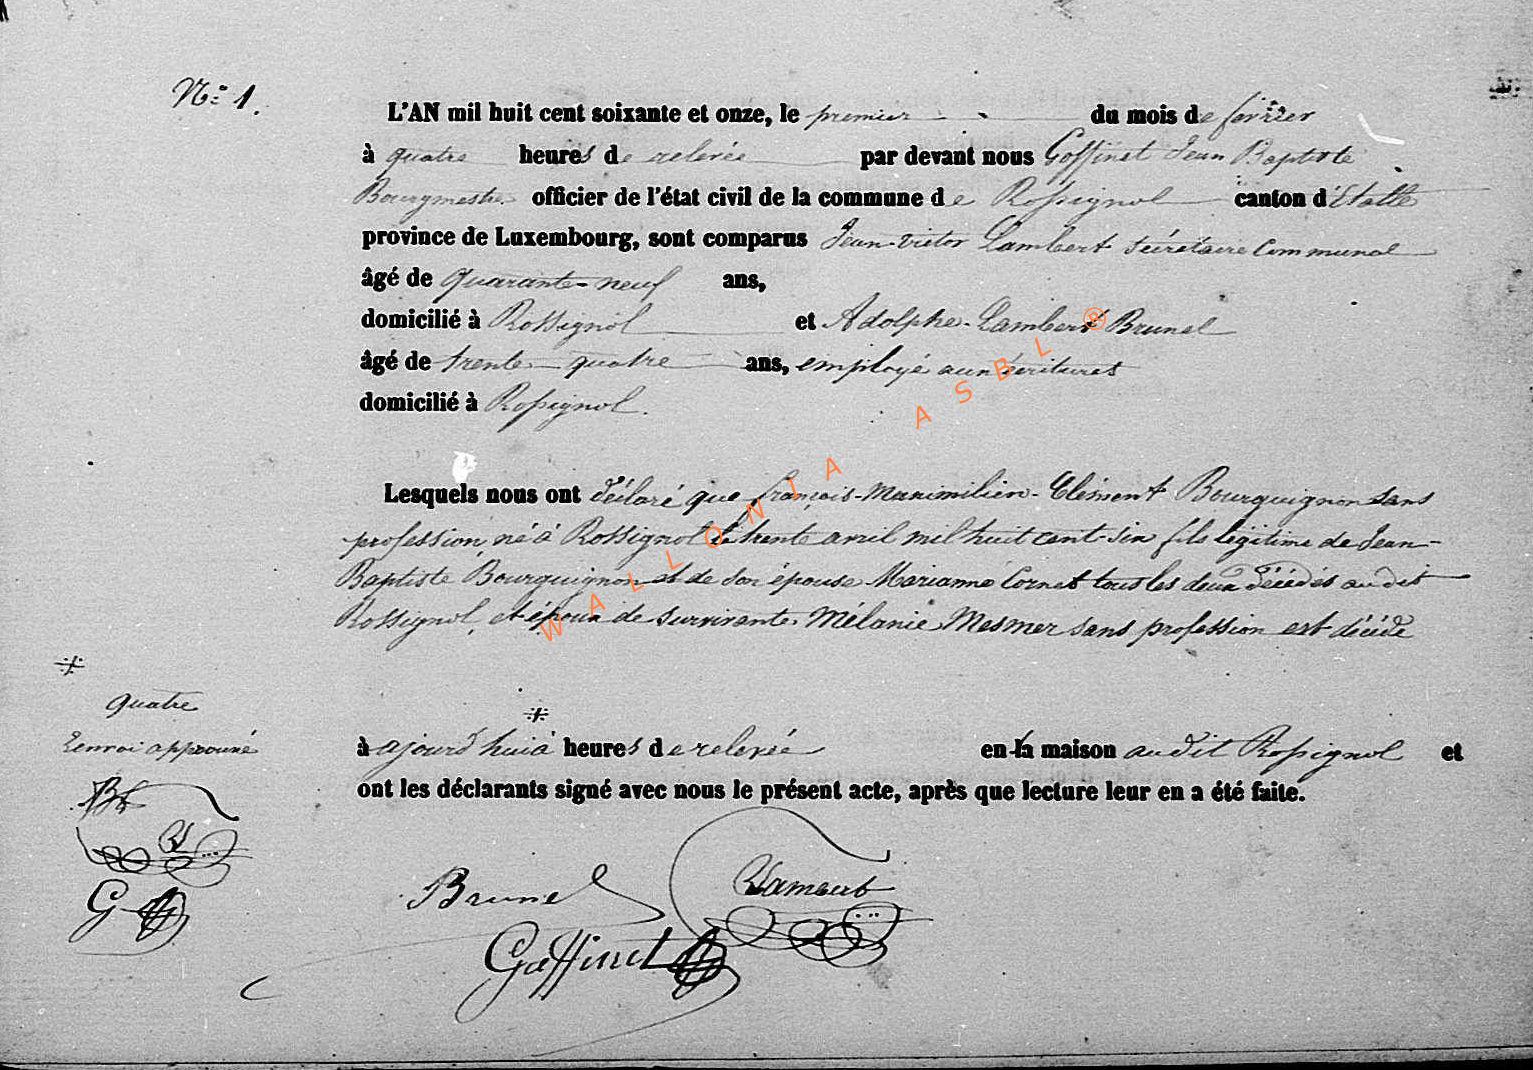 N.° 1.
L'AN mil huit cent soixante et onze, le premier du mois de février
à quatre heures de relevée par devant nous Goffinet Jean Baptiste
Bourgmestre officier de l'état civil de la commune de Rossignol canton d'Etalle
province de Luxembourg, sont comparus Jean-Victor Lambert Sécrétaire Communal
âgé de quarante-neuf ans,
domicilié à Rossignol et Adolphe-Lambert Brunel
âgé de trente-quatre ans, employé aux écritures
domicilié à Rossignol.
Lesquels nous ont déclaré que françois-Maximilien-Clément Bourguignon sans
profession, né à Rossignol le trente avril mil huit cent-six fils légitime de Jean-
Baptiste Bourguignon et de son épouse Marianne Cornet tous les deux décédés audit
Rossignol, et époux de survivante Mélanie Mesmer sans profession est décédé
à ajourd'hui à heures de relevée en la maison audit Rossignol et
ont les déclarants signé avec nous le présent acte, après que lecture leur en a été faite.
quatre
renvoi approuvé
B
G
Brunel
Lambert
Goffinet
WALLONIA ASBL ®